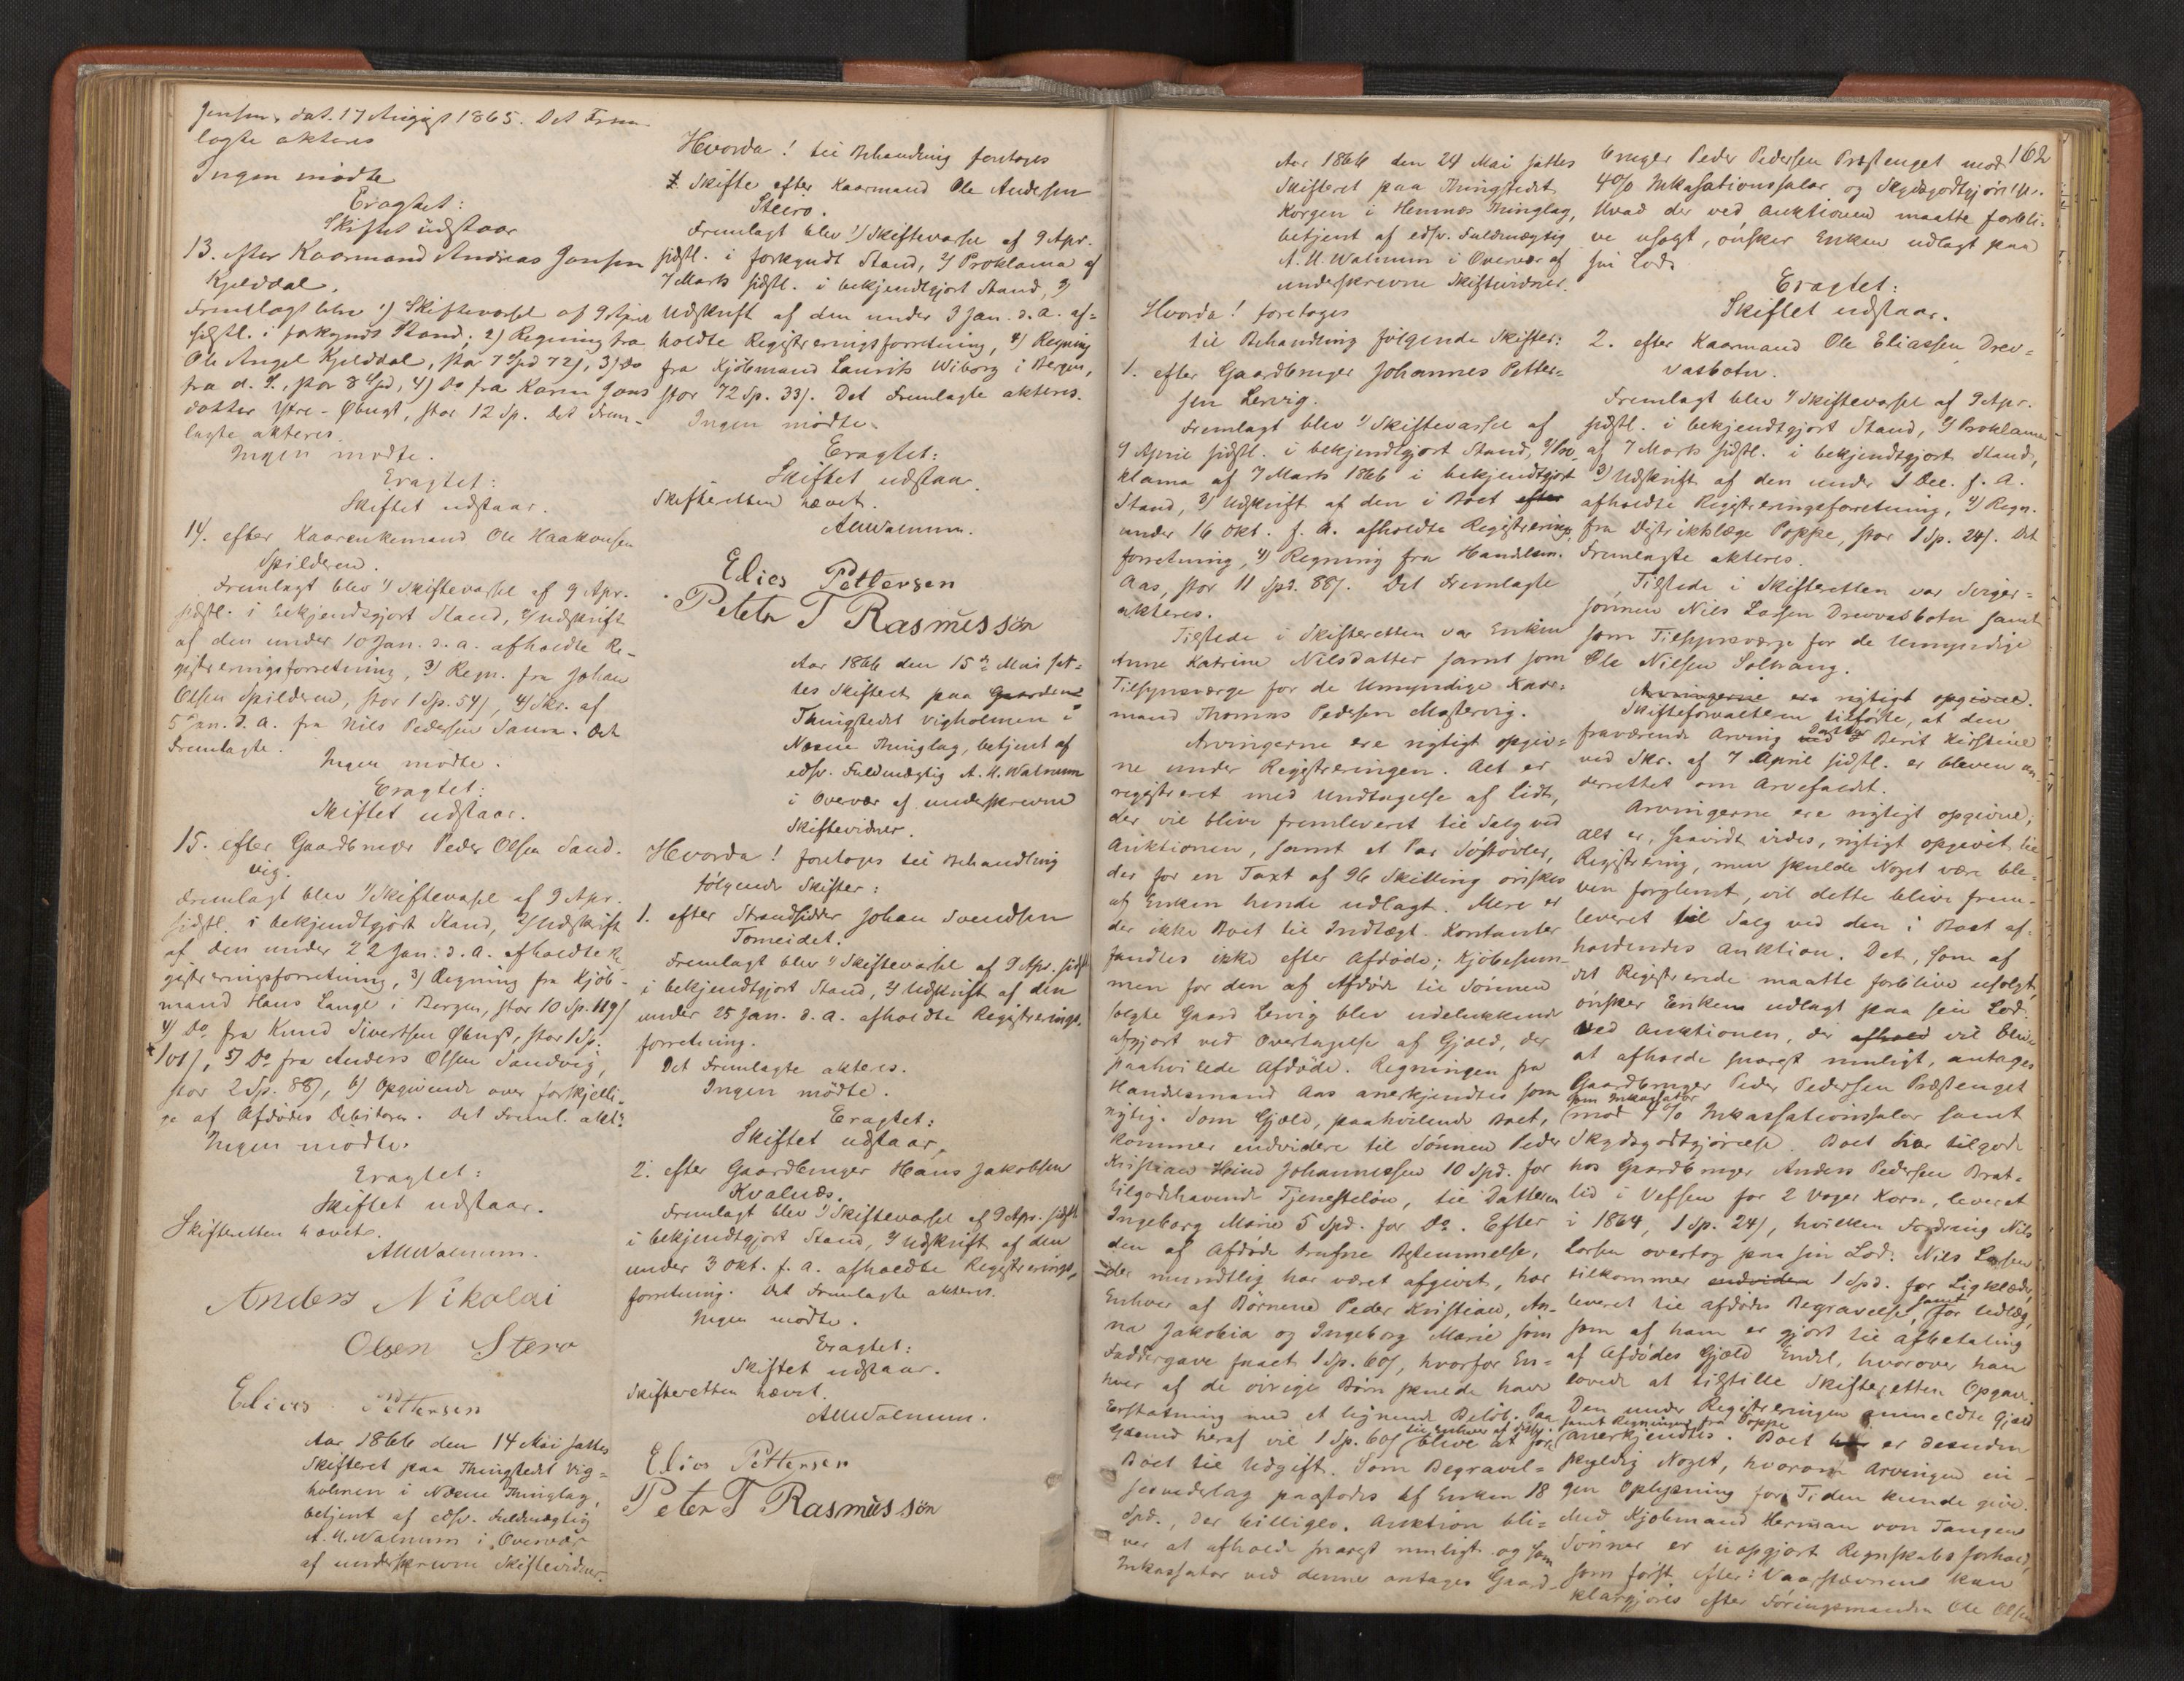 Jensen, dat. 17 August 1865. Det Frem-
lagte akteres
Ingen mødte
Eragtet:
Skiftet udstaar
13. efter Kaarmand Andreas Jensen
Kjelddal.
Fremlagt blev 1) Skiftevarsel af 9 April
sidstl. i forkyndt Stand; 2) Regning fra
Ole Angel Kjelddal, stor 7 Spd 72 s, 3) Do
fra d. S., stor 8 Spd, 4) Do fra Karen Jons
datter Ytre-Øbugt, stor 12 Sp. Det Frem-
lagte akteres.
Ingen mødte.
Eragtet:
Skiftet udstaar.
14. efter Kaarenkemand Ole Haakonsen
Spilderen.
Fremlagt blev 1) Skiftevarsel af 9 Apr.
sidstl. i bekjendtgjort Stand, 2) Udskrift
af den under 10 Jan. d. a. afholdte Re-
gistreringsforretning, 3) Regn. fra Johan
Olsen Spilderen, stor 1 Sp. 54 s, 4) Skr. af
5 Jan. d. a. fra Nils Pedersen Saura. Det
Fremlagte.
Ingen mødte.
Eragtet:
Skiftet udstaar.
15. efter Gaardbruger Peder Olsen Sand-
vig.
Fremlagt blev 1) Skiftevarsel af 9 Apr.
sidstl. i bekjendtgjort Stand, 2) Udskrift
af den under 22 Jan. d. a. afholdte Re-
gistreringsforretning, 3) Regning fra Kjøb-
mand Hans Lange i Bergen, stor 10 Sp. 119 s
4) Do fra Knud Sivertsen Øbugt, stor 1 Sp.
101 s, 5) Do fra Anders Olsen Sandvig,
stor 2 Sp. 88 s, 6) Opgivende over forskjelli-
ge af Afdødes Debitorer. Det Freml. akt:
Ingen mødte.
Eragtet:
Skiftet udstaar.
Skifteretten hævet.
AUWalnum.
Anders Nikolai
Olsen Stero
Elias Pettersen
Aar 1866 den 14 Mai sattes
Skifteret paa Thingstedet Vig-
holmen i Næsne Thinglag,
betjent af edsv. Fuldmægtig
A. U. Walnum i Overvær
af underskrevne Skiftevidner.
Hvorda! til Behandling foretoges
Skifte efter Kaarmand Ole Andersen
Steiro.
Fremlagt blev 1) Skiftevarsel af 9 Apr.
sidstl. i forkyndt Stand, 2) Proklama af
7 Marts sidstl. i bekjendtgjort Stand, 3)
Udskrift af den under 9 Jan. d. a. af-
holdte Registreringsforretning, 4) Regning
fra Kjøbmand Laurits Wiborg i Bergen,
stor 72 Sp. 33 s. Det Fremlagte akteres.
Ingen mødte.
Eragtet:
Skiftet udstaar.
Skifteretten hævet.
AUWalnum.
Elias Pettersen
Peter T Rasmussøn
Aar 1866 den 15de Mai sat-
tes Skifteret paa Gaarden
Thingstedet Vigholmen i
Næsne Thinglag, betjent af
edsv. Fuldmægtig A. U. Walnum
i Overvær af underskrevne
Skiftevidner.
Hvorda! foretoges til Behandling
følgende Skifter:
1. efter Strandsidder Johan Svendsen
Tomeidet.
Fremlagt blev 1) Skiftevarsel af 9 Apr. sidstl
i bekjendtgjort Stand, 2) Udskrift af den
under 25 Jan. d. a. afholdte Registrerings-
forretning.
Det Fremlagte akteres.
Ingen mødte.
Eragtet:
Skiftet udstaar.
2. efter Gaardbruger Hans Jakobsen
Kvalnæs.
Fremlagt blev 1) Skiftevarsel af 9 Apr. sidstl
i bekjendtgjort Stand, 2) Udskrift af den
under 3 Okt. f. a. afholdte Registrerings-
forretning. Det Fremlagte akteres.
Ingen mødte.
Eragtet:
Skiftet udstaar.
Skifteretten hævet.
AUWalnum.
Elias Pettersen
Peter T Rasmussøn
Aar 1866 den 24 Mai sattes
Skifteret paa Thingstedet
Korgen i Hemnæs Thinglag,
betjent af edsv. Fuldmægtig
A. U. Walnum i Overvær af
underskrevne Skiftevidner.
Hvorda! foretoges
til Behandling følgende Skifter:
1. efter Gaardbruger Johannes Petter-
sen Lervig.
Fremlagt blev 1) Skiftevarsel af
9 April sidstl. i bekjendtgjort Stand, 2) Pro-
klama af 7 Marts 1866 i bekjendtgjort
Stand, 3) Udskrift af den i Boet efter
under 16 Okt. f. A. afholdte Registrerings-
forretning, 4) Regning fra Handelsm.
Aas, stor 11 Spd. 88 s. Det Fremlagte
akteres.
Tilstede i Skifteretten var Enken
Anne Katrine Nilsdatter samt som
Tilsynsværge for de Umyndige Kaar-
mand Thomas Pedersen Mastervig.
Arvingerne ere rigtigt opgiv-
ne under Registreringen. Alt er
registreret med Undtagelse af lidt,
der vil blive fremleveret til Salg ved
Auktionen, samt et Par Søstøvler,
der for en Taxt af 96 Skilling ønskes
af Enken hende udlagt. Mere er
der ikke Boet til Indtægt. Kontanter
fandtes ikke efter Afdøde; Kjøbesum-
men for den af Afdøde til Sønnen
solgte Gaard Lervig blev udelukkende
afgjort ved Overtagelse af Gjæld, der
paahvilede Afdøde. Regningen fra
Handelsmand Aas anerkjendtes som
rigtig. Som Gjæld, paahvilende Boet,
kommer endvidere til Sønnen Peder
Kristian Hind Johannessen 10 Spd. for
tilgodehavende Tjenesteløn, til Datteren
Ingeborg Marie 5 Spd. for Do. Efter
den af Afdøde trufne Bestemmelse,
der mundtlig har været afgivet, har
Enhver af Børnene Peder Kristian, An-
na Jakobia og Ingeborg Marie som
Faddergave faaet 1 Sp. 60 s, hvorfor En-
hver af de øvrige Børn skulde have
Erstatning med et lignende Beløb. Paa
Grund heraf vil 1 Sp. 60 s til Enhver af disse blive at føre
Boet til Udgift. Som Begravel-
sesvederlag paastodes af Enken 18
Spd., der billiges. Auktion bli-
ver at afholde snarest muligt og som
Inkassator ved denne antages Gaard-
162
bruger Peder Pedersen Præstenget mod
4% Inkassationssalar og Skydsgodtgjørelse.
Hvad der ved Auktionen maatte forbli-
ve usolgt, ønsker Enken udlagt paa
sin Lod.
Eragtet:
Skiftet udstaar.
2. efter Kaarmand Ole Eliassen Drev-
vasbotn.
Fremlagt blev 1) Skiftevarsel af 9 Apr.
sidstl. i bekjendtgjort Stand, 2) Proklama
af 7 Marts sidstl. i bekjendtgjort Stand,
3) Udskrift af den under 1 Dec. f. A.
afholdte Registreringsforretning, 4) Regn.
fra Distriktslæge Poppe, stor 1 Sp. 24 s. Det
Fremlagte akteres.
Tilstede i Skifteretten var Sviger-
sønnen Nils Larsen Drevvasbotn samt
som Tilsynsværge for de Umyndige
Ole Nilsen Solvang.
Arvingerne ere rigtigt opgivne.
Skifteforvalteren tilførte, at den
fraværende Arving Datter Berit Kirstine
ved Skr. af 7 April sidstl. er bleven un-
derrettet om Arvefaldet.
Arvingerne ere rigtigt opgivne;
Alt er, saavidt vides, rigtigt opgivet til
Registrering, men skulde Noget være ble-
ven forglemt, vil dette blive frem-
leveret til Salg ved den i Boet af-
holdendes Auktion. Det, som af
det Registrerede maatte forblive usolgt,
ønsker Enken udlagt paa sin Lod.
Ved Auktionen, der afhold vil blive
at afholde snarest muligt, antages
Gaardbruger Peder Pedersen Præstenget
som Inkassator
mod 4% Inkassationssalar samt
Skydsgodtgjørelse. Boet har tilgode
hos Gaardbruger Anders Pedersen Brat-
lid i Vefsen for 2 Voger Korn, leveret
i 1864, 1 Sp. 24 s, hvilken Fordring Nils
Larsen overtog paa sin Lod. Nils Larsen
tilkommer endvidere 1 Spd. for Ligklæder,
leveret til Afdødes Begravelse, samt for Udlæg,
som af ham er gjort til Afbetaling
af Afdødes Gjæld Endel, hvorover han
lovede at tilstille Skifteretten Opgave.
Den under Registreringen anmeldte Gjæld
samt Regningen fra Poppe
anerkjendtes. Boet er desuden
skyldig Noget, hvorom Arvingen in-
gen Oplysning for Tiden kunde give.
Med Kjøbmand Herman von Tangens
Sønner er uopgjort Regnskabsforhold,
som først efter Vaarstævnene kan
klargjøres efter Føringsmanden Ole Olsen